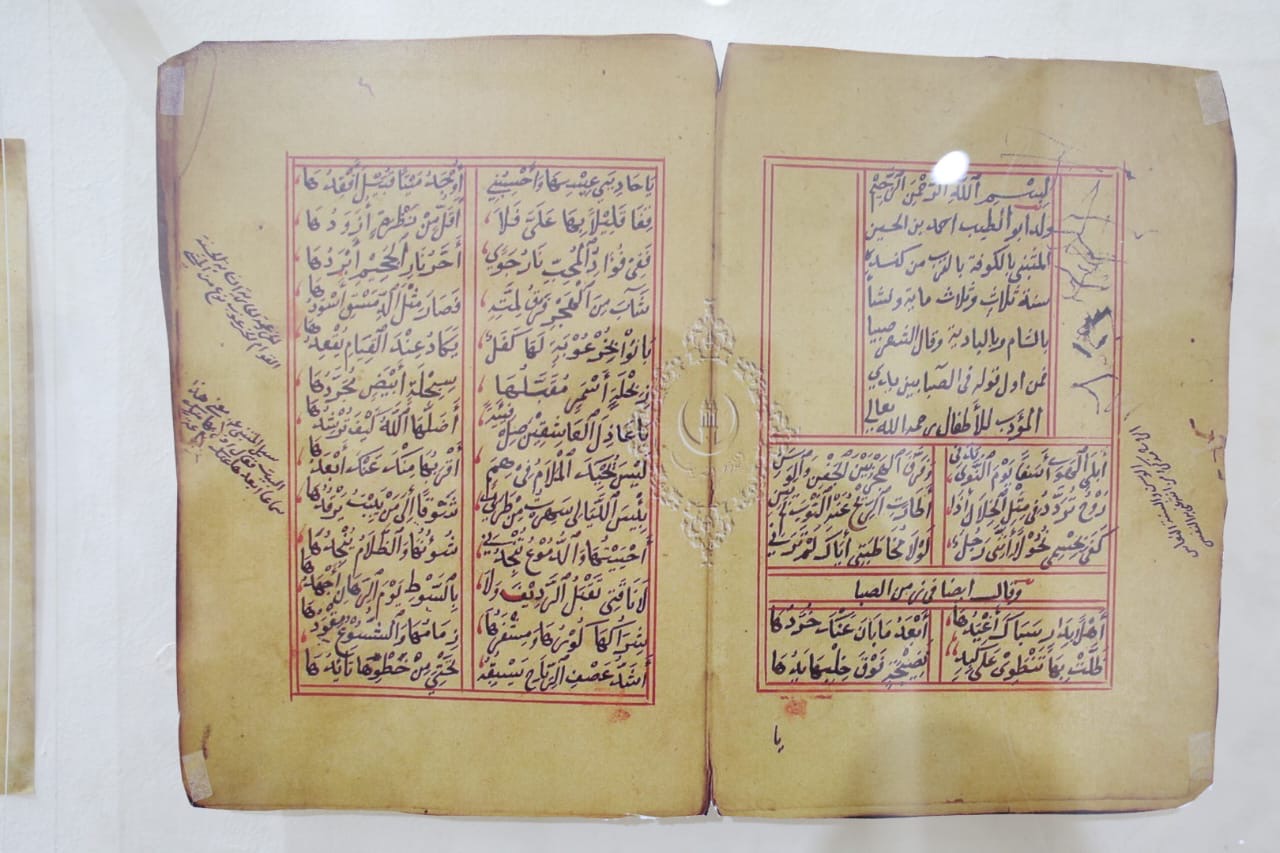 بسم الله الرحمن الرحيم
ولد ابو الطيب احمد بن الحسين
المتنبي بالكوفة بالقرب من كندة
سنة ثلاث وثلاث ماية ونشا
بالشام وبالبادية وقال الشعر صبيا
فمن اول قوله في الصبا بين يدي
المؤدب للأطفال رحمه الله تعالى
أبلى الهوى أسفا يوم النوى بدني وفرق الهجر بين الجفن والوسن
روح تردد في مثل الخلال إذا أطارت الريح عنه الثوب لم يبن
كفى بجسمي نحولا أنني رجل لولا مخاطبتي أياك لم ترني
وقال ايضا في زمن الصبا
أهلا بدار سباك أغيدها أبعد ما بان عنك خردها
ظلت بها تنطوي على كبد نضيجة فوق خلبها يدها
يا
يا حاديي عيسها وأحسبني أوجد ميتا قبيل أفقدها
قفا قليلا بها علي فلا أقل من نظرة أزودها
ففي فؤاد المحب نار جوي أحر نار الجحيم أبردها
شاب من الهجر فرق لمته فصار مثل الدمقس أسودها
بانوا بخرعوبة لها كفل يكاد عند القيام يقعدها
ربحلة أسمر مقبلها سبحلة أبيض مجردها
يا عاذل العاشقين أضلها الله كيف ترشدها
ليس يحيك الملام في همم أقربها منك عنك أبعدها
بئس الليالي سهرت من طربي شوقا الى من يبيت يرقدها
أحييتها والدموع تنجدني شئونها والظلام ينجدها
لا ناقتي تقبل الرديف ولا بالسوط يوم الرهان أجهدها
شراكها كورها ومشفرها زمامها والشسوع مقودها
أشد عصف الرياح يسبقه تحتي من خطوها تأيدها